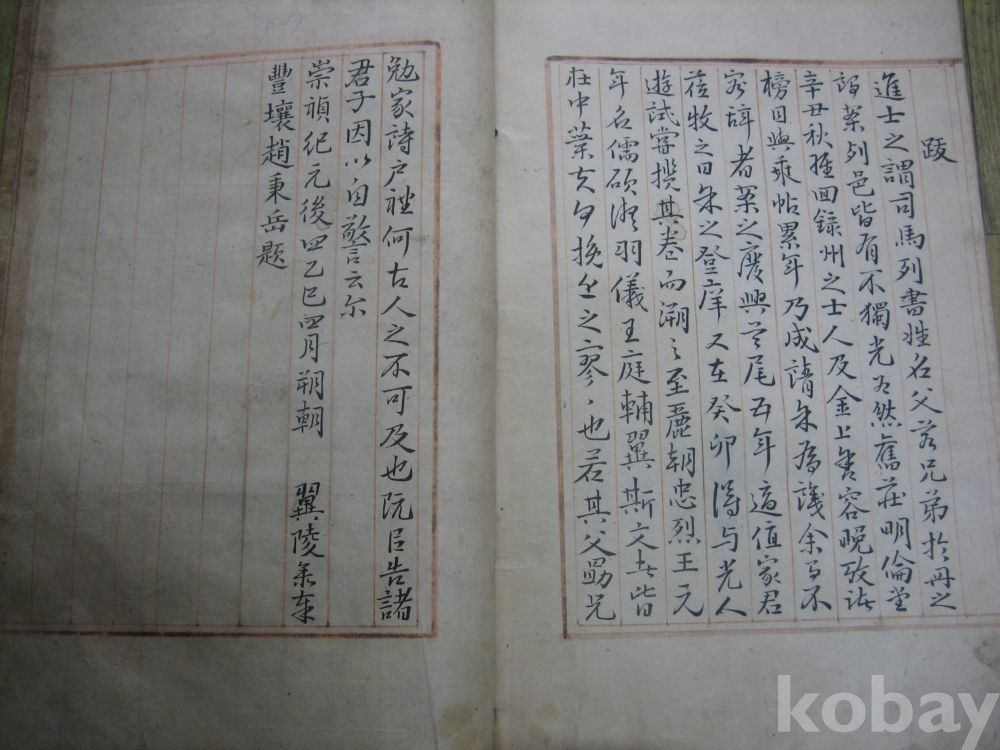 跋
進士之謂司馬列書姓名父若兄弟於冊之
案列邑皆有不獨光為然舊莊明倫堂
辛丑秋 回錄州之士人及金上舍容晚攷諸
榜目與乘帖累年乃成請 余 不
者案之廢興首尾五年適值家君
莅牧之日 之登庠又在癸卯得与光人
遊試嘗攬其卷而溯之至麗朝忠烈王元
年名儒碩 羽儀王庭輔翼斯文 皆
在中葉 之寥〻也若其父勗兄
勉家詩戶禮何古人之不可及也既 告諸
君子因以自警云尔
崇禎紀元後四乙巳四月朔朝 翼陵 
豐壤趙秉岳題
kobay